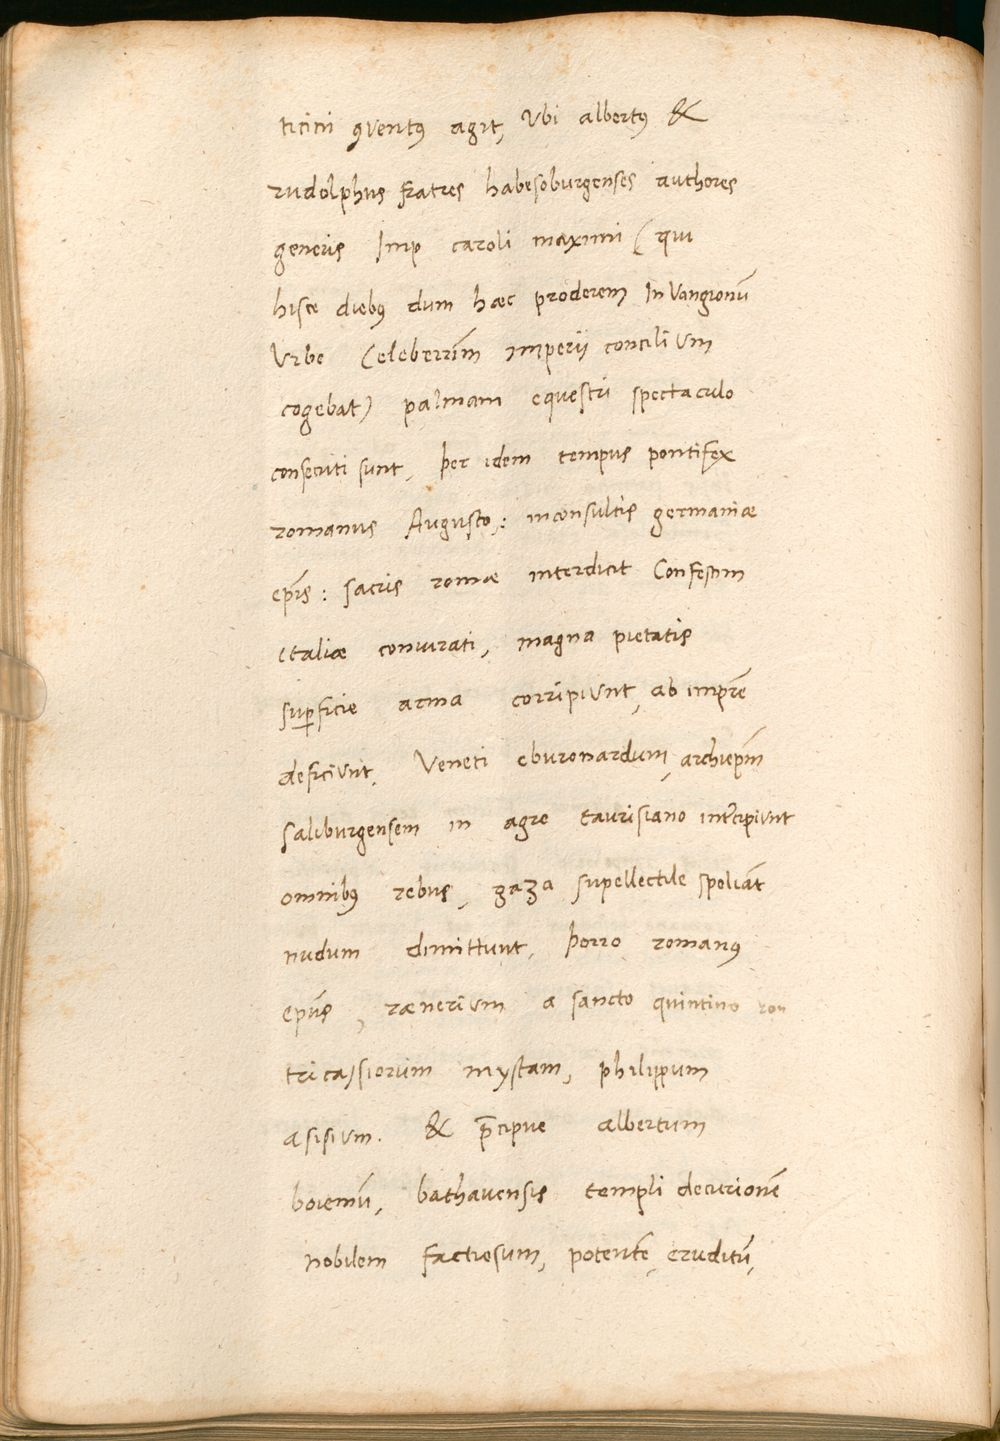 ticini ꝯventꝰ agit, Vbi albertꝰ &
rudolphus fratres habesoburgenses authores
generis Imp caroli maximi (qui
hisce diebꝰ dum hæc proderem In Vangionū
Vrbe Celeberrīm imperii concilium
cogebat) palmam equestri spectaculo
consecuti sunt, per idem tempus pontifex
romanus Augusto,: inconsultis germaniæ
ep̄is : sacris romæ interdicit Confestim
italiæ coniurati, magna pietatis
suꝑficie arma corripiunt, ab imp̄re
deficiunt, Veneti eburonardum, archiep̄m
saliburgensem in agro taurisiano intercipiunt
omnibꝰ rebus, gaza supellectile spoliāt
nudum dimittunt, porro romanꝰ
ep̄us , rænerium a sancto quintino
tricassiorum mystam, philippum
asisium. & p̄cipue albertum
boiemū, bathauensis templi decurionē
nobilem factiosum, potentē, eruditū,